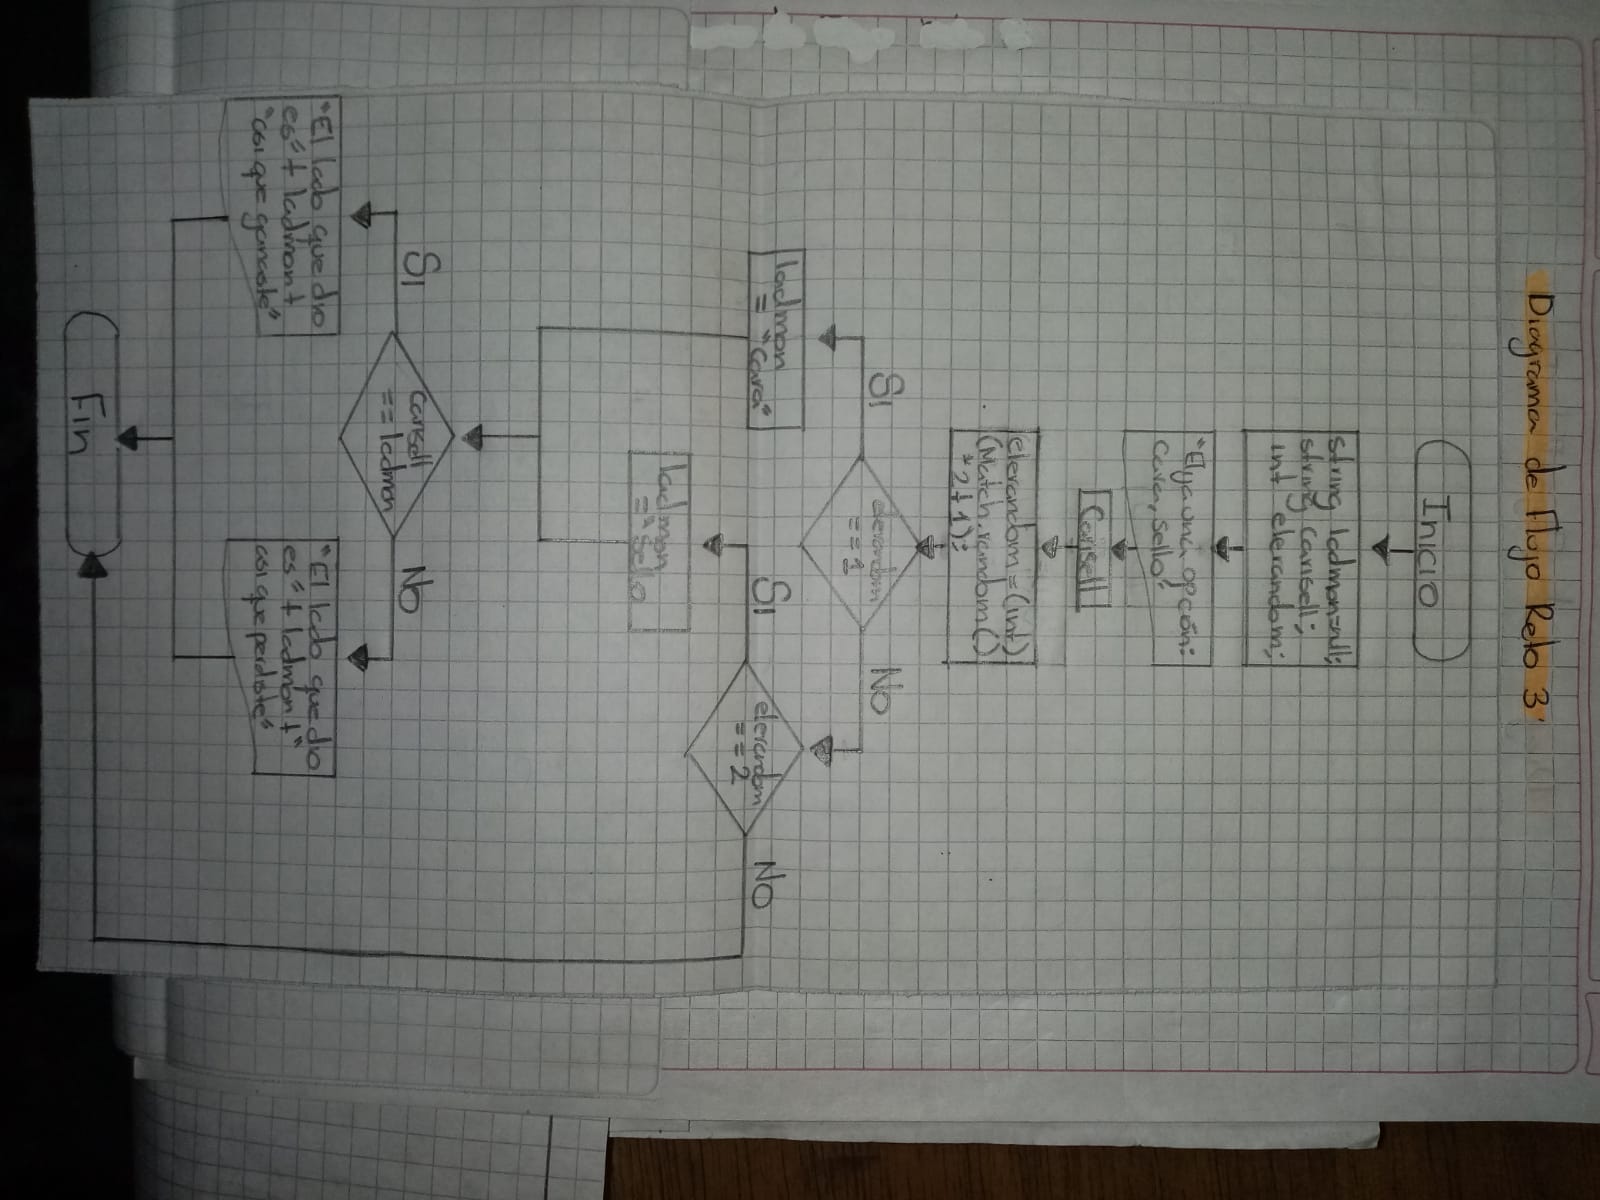 Diagrama de Flujo Reto 3
Inicio
string ladmon=null;
string carisell;
int elerandom;
"Elija una opción:
Cara, Sello"
Carisell
elerandom=(int)
(Match.random()
*2+1);
elerandom
==1
SI
NO
ladmon
= "Cara"
elerandom
==2
SI
NO
ladmon
="Sello
Carisell
==ladmon
SI
NO
"El lado que dio
es"+ ladmon+
"asi que ganaste"
"El lado que dio
es"+ ladmon+"
asi que perdiste"
Fin